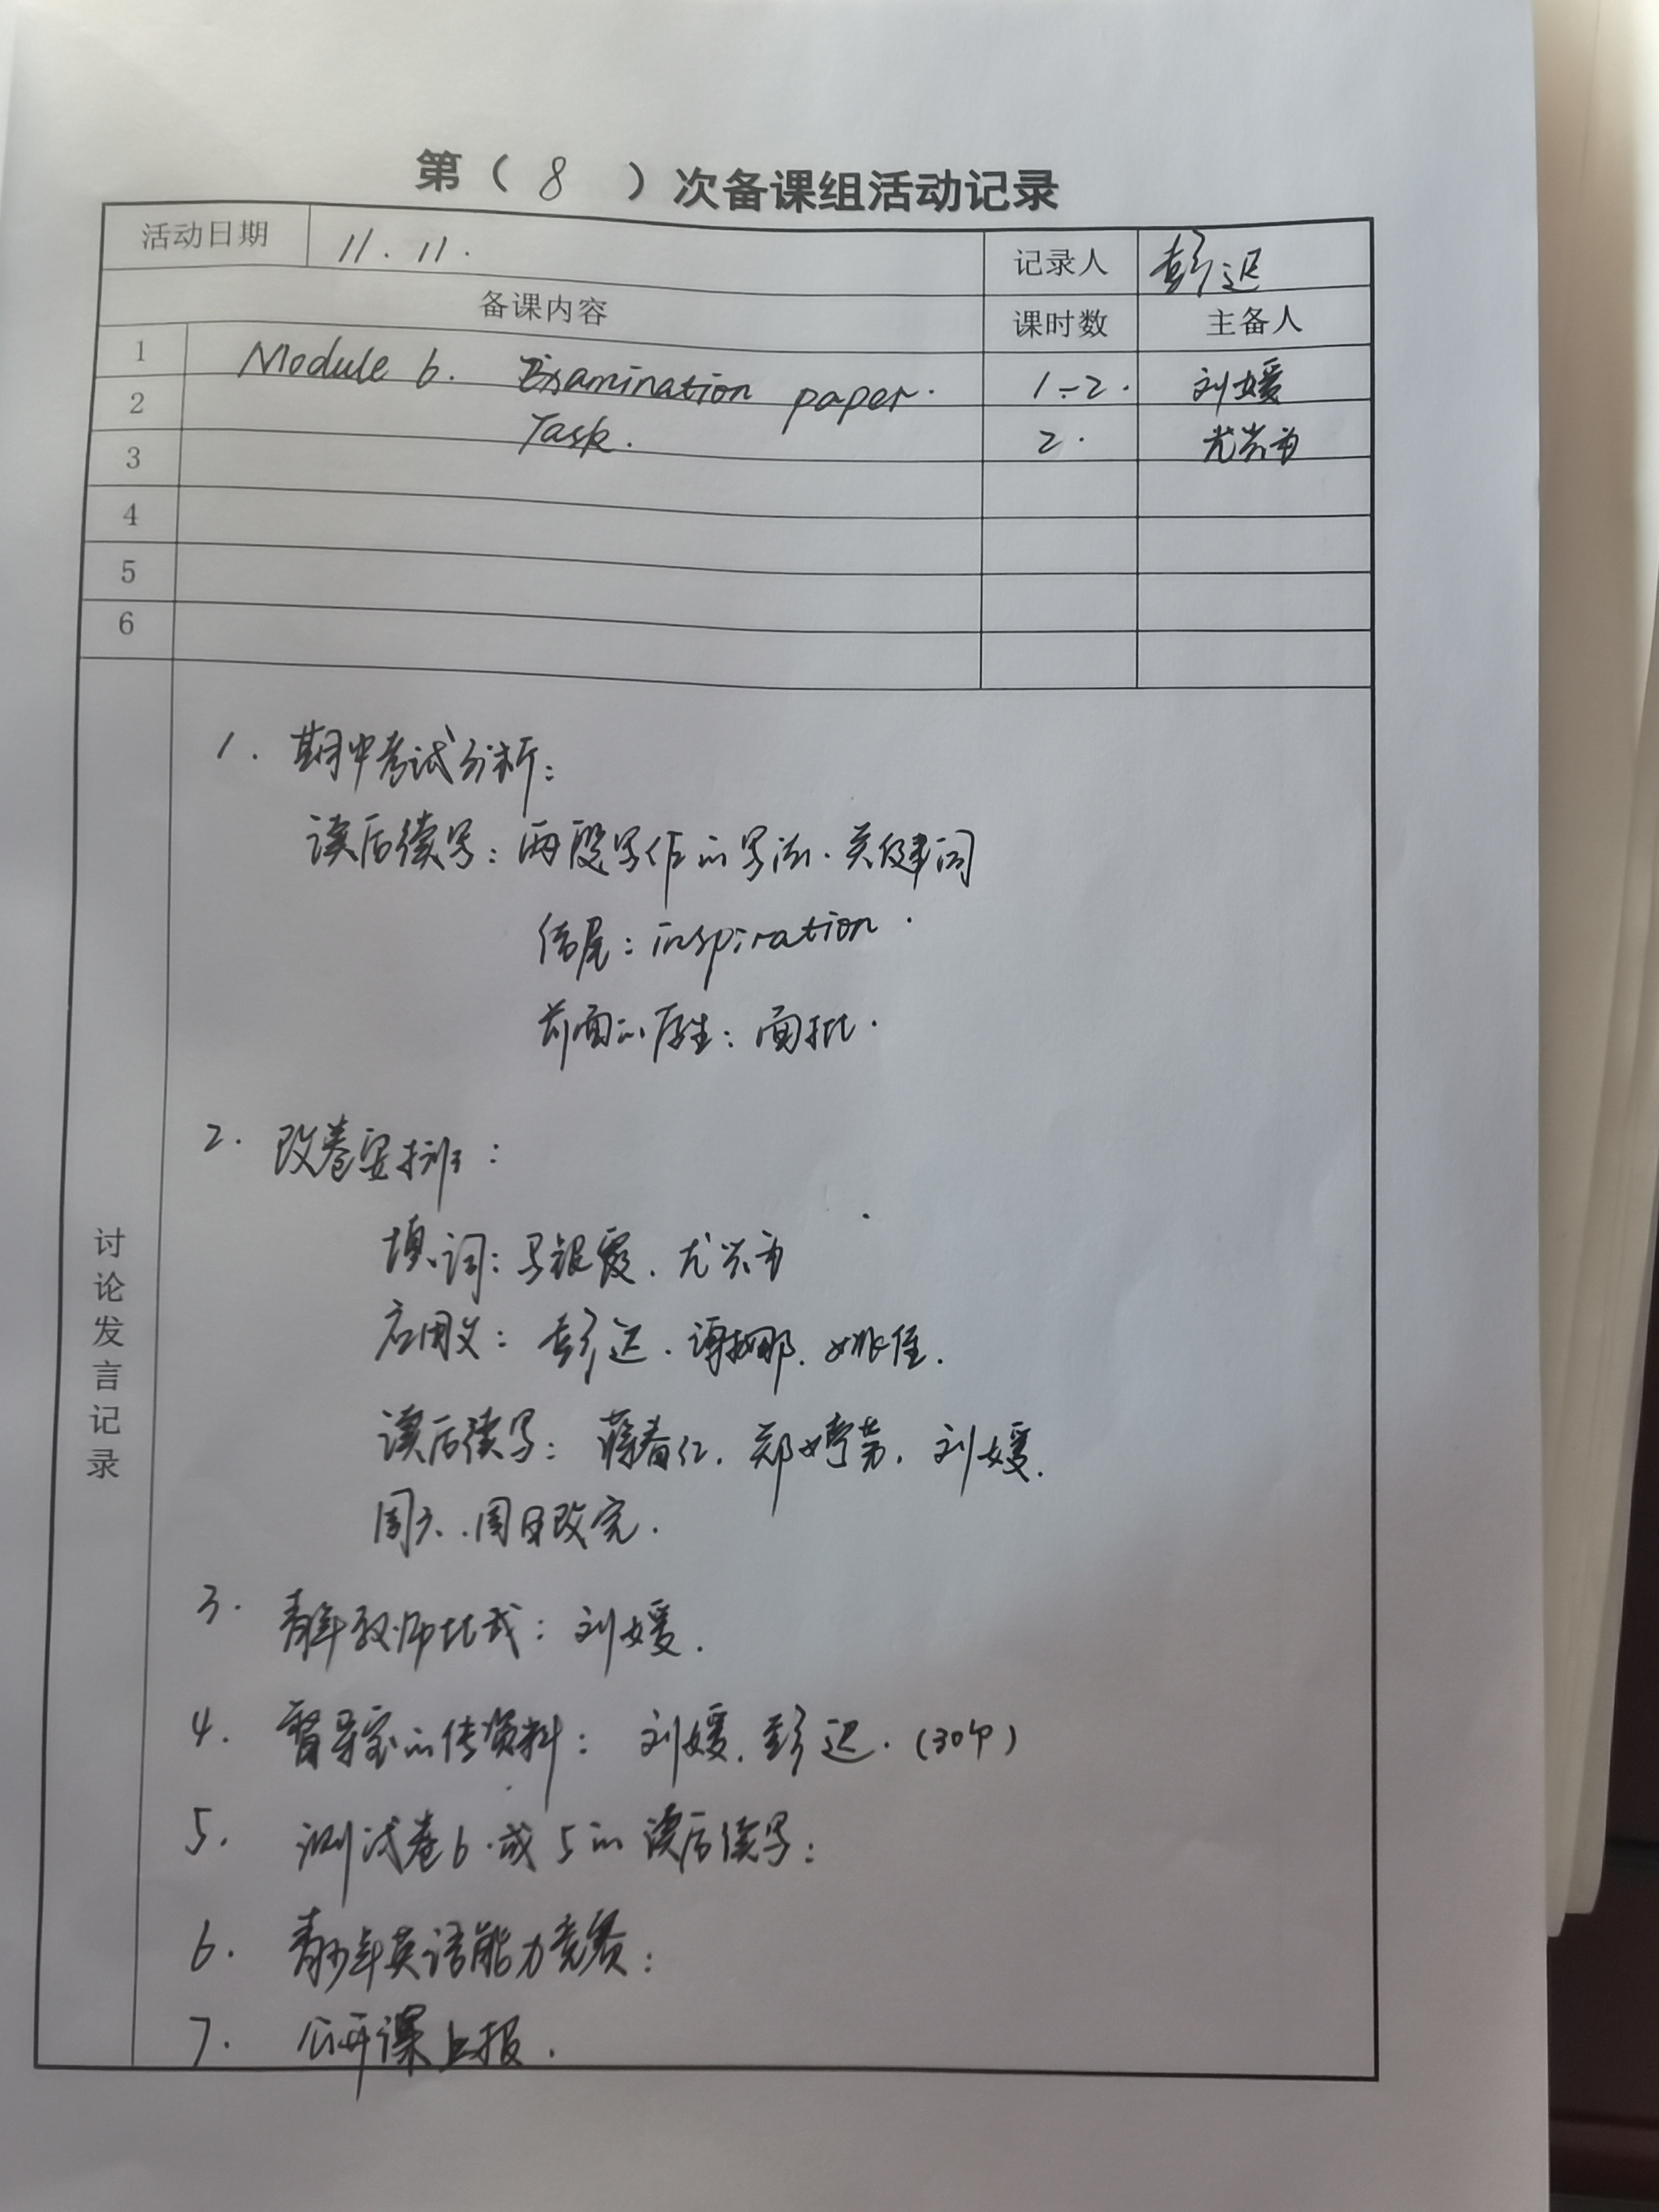 第（ 8 ）次备课组活动记录
活动日期 11.11. 记录人 彭迟
备课内容 课时数 主备人
1 Module 6. Examination paper. 1-2. 刘媛
2 Task. 2.
3
4
5
6
讨论发言记录
1. 期中考试分析：
读后续写：两段写作的写法.关键词
结尾：inspiration.
前面的学生：面批.
2. 改卷安排：
填词：马银霞.
应用文：彭迟.谭娜.姚佳.
读后续写：蒋春仁.郑婷芳.刘媛.
周六.周日改完.
3. 青年教师比武：刘媛.
4. 督导室的传资料：刘媛.彭迟.(30个)
5. 测试卷6.或5的读后续写：
6. 青少年英语能力竞赛：
7. 公开课上报.